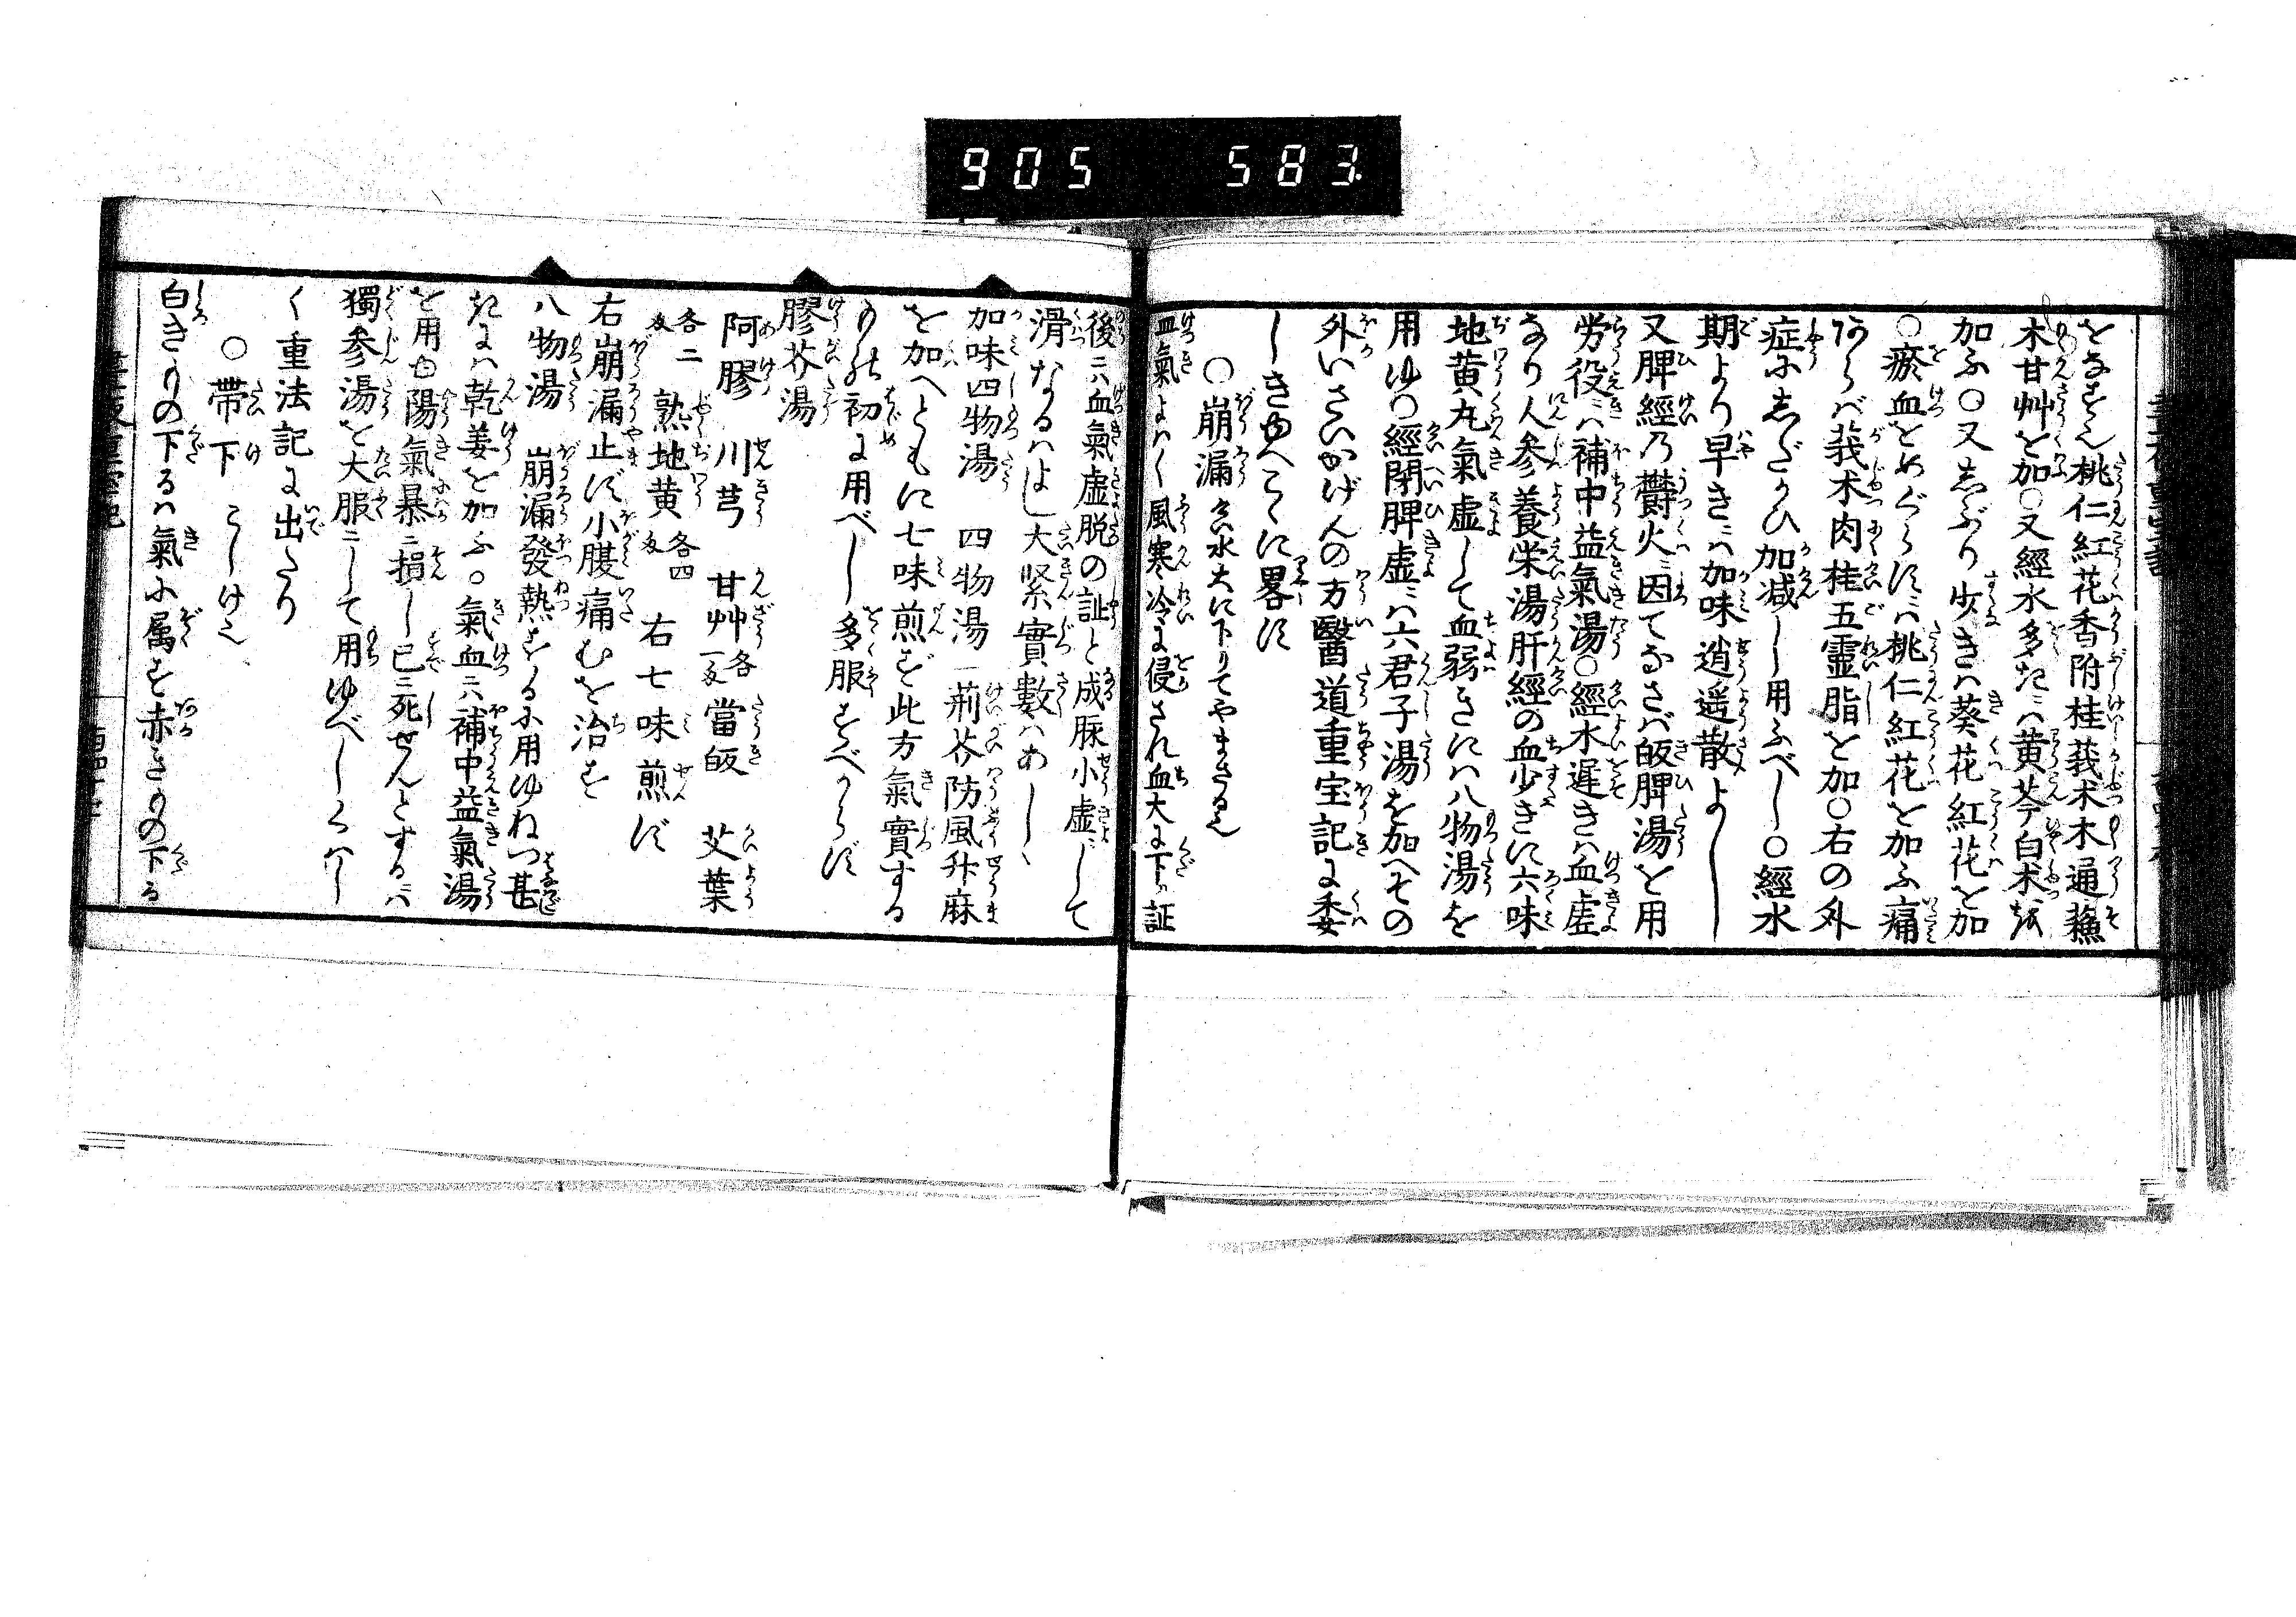 905 583
をなすは桃仁紅花香附桂莪朮木通蘓
木甘艸を加〇又經水多きには黄芩白朮を
加ふ〇又しぶり少きは葵花紅花を加
〇瘀血とめぐらずは桃仁紅花を加ふ痛
あらば莪朮肉桂五霊脂を加〇右の外
症にしたがひ加減し用ふべし〇經水
期より早きは加味逍遥散よし
又脾經乃欝火に因てなさば皈脾湯を用
労役には補中益氣湯〇經水遅きは血虚
なり人参養栄湯肝經の血少きに六味
地黄丸氣虚して血弱きには八物湯を
用ゆ〇經閉脾虚には六君子湯を加へその
外いさいかげんの方醫道重宝記に委
しきゆへこゝに畧す
〇崩漏 大に下りてやまざる也
血氣よはく風寒冷に侵され血大に下る証
後には血氣虚脱の証と成脉小虚にして
滑なるはよし大緊實數はあしゝ
加味四物湯 四物湯に荊芥防風升麻
を加へともに七味煎ず此方氣實する
もの初に用べし多服すべからず
膠芥湯
阿膠 川芎 甘艸各一匁 當皈 艾葉
各二匁 熟地黄各四匁 右七味煎ず
右崩漏止ず小腹痛むを治す
八物湯 崩漏發熱するに用ゆねつ甚
きには乾姜を加ふ〇氣血には補中益氣湯
を用由陽氣暴に損し已に死せんとするは
獨参湯を大服にして用ゆべしくはし
く重法記に出たり
〇帶下 こしけ也
白きものの下るは氣に属す赤きものの下る